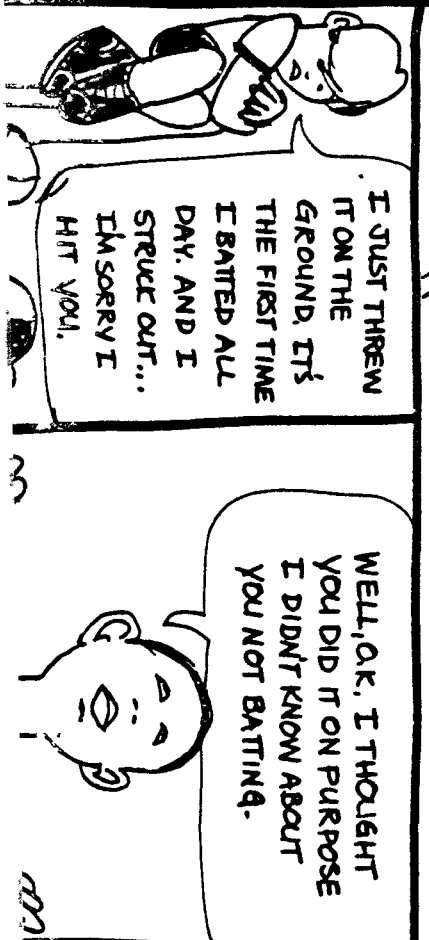 I JUST THREW
IT ON THE
GROUND. IT'S
THE FIRST TIME
I BATTED ALL
DAY. AND I
STRUCK OUT...
I'M SORRY I
HIT YOU.
WELL, O.K. I THOUGHT
YOU DID IT ON PURPOSE
I DIDN'T KNOW ABOUT
YOU NOT BATTING.